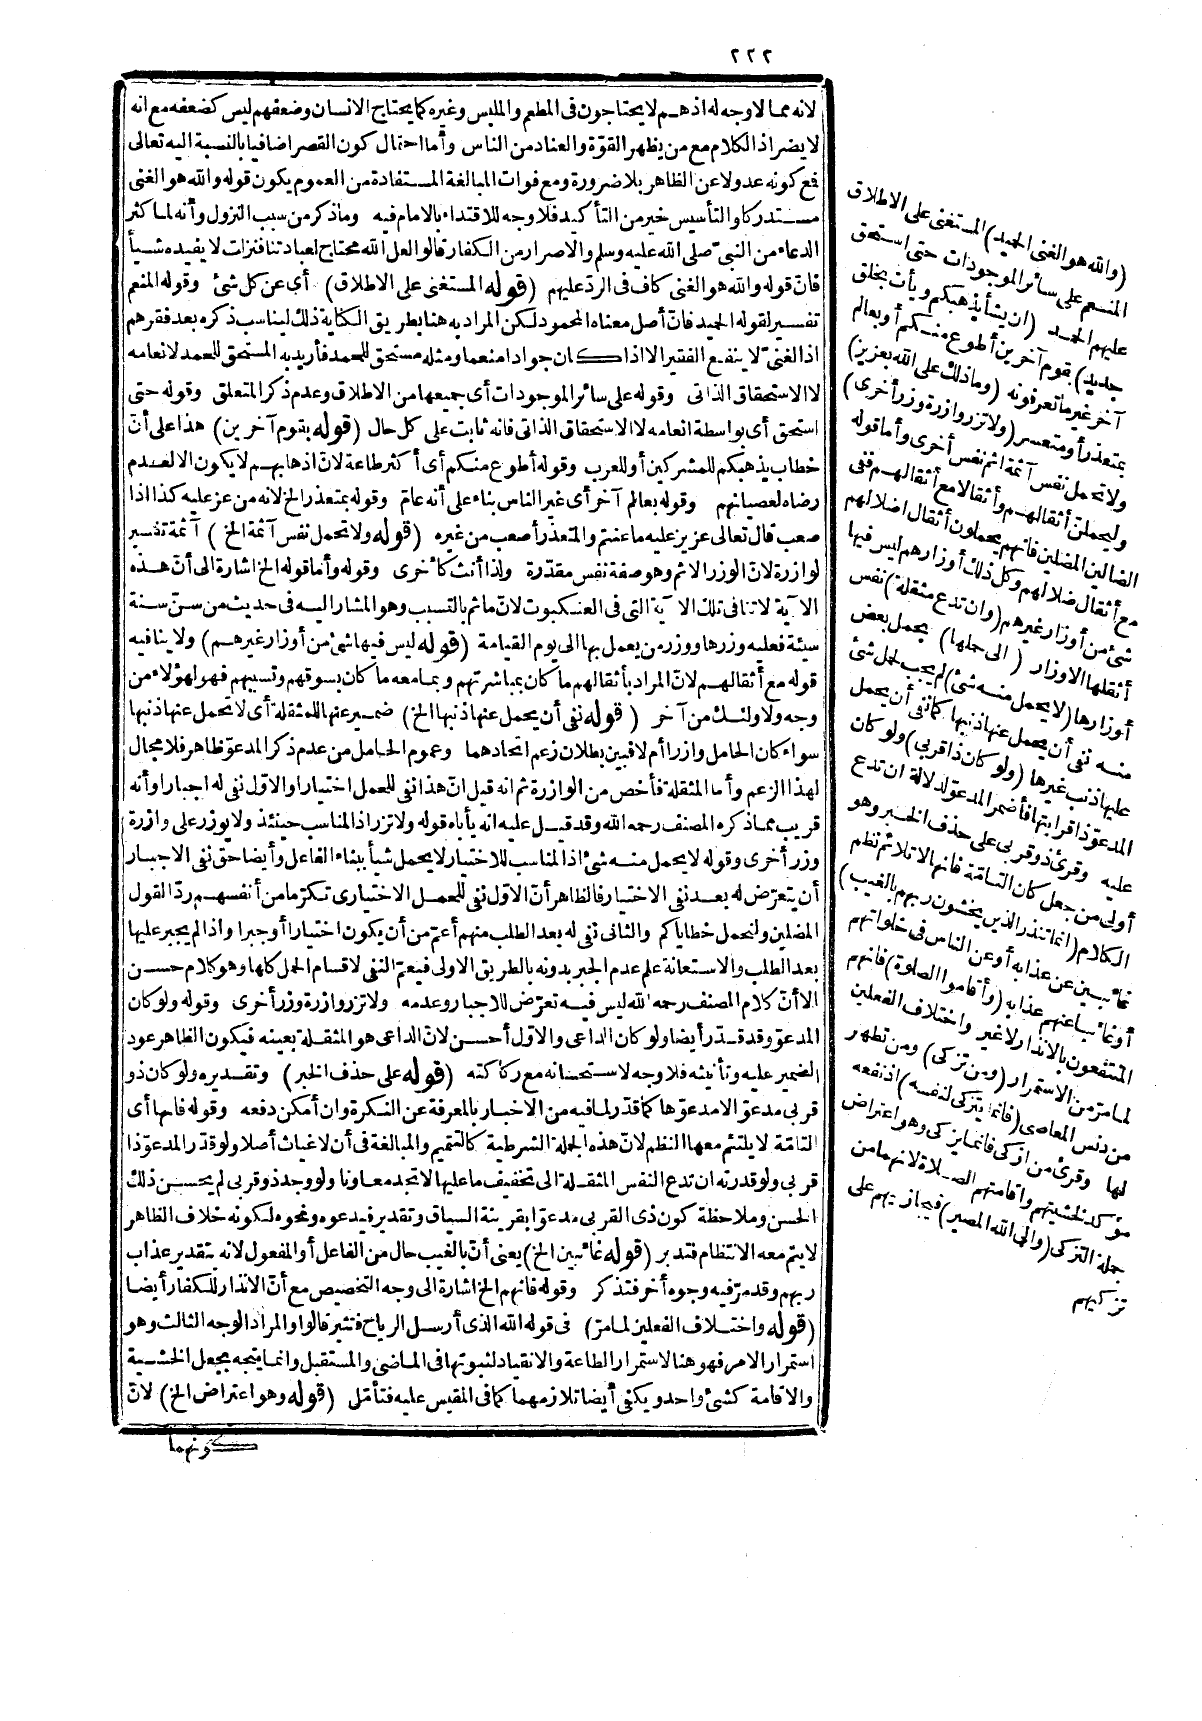 ٢٢٢
لانه ممالا وجه له اذ هم لا يحتاجون فى المطعم والملبس وغيره كما يحتاج الانسان وضعفهم ليس كضعفه مع انه
لا يضر اذ الكلام مع من يظهر القوّة والعناد من الناس وأما احتمال كون القصر اضافيا بالنسبة اليه تعالى
فمع كونه عدولا عن الظاهر بلا ضرورة ومع فوات المبالغة المستفادة من العموم يكون قوله والله هو الغنى
مستدركا والتأسيس خير من التأكيد فلا وجه للاقتداء بالامام فيه وماذكر من سبب النزول وأنه لما كثر
الدعاء من النبىّ صلى الله عليه وسلم والاصرار من الكفار قالوا لعل الله محتاج لعبادتنا فنزلت لا يفيده شيأ
فانّ قوله والله هو الغنى كاف فى الردّ عليهم (قوله المستغنى على الاطلاق) أى عن كل شئ وقوله المنعم
تفسير لقوله الحميد فانّ أصل معناه المحمود لكن المراد به هنا بطريق الكناية ذلك ليناسب ذكره بعد فقرهم
اذ الغنىّ لا ينفع الفقير الا اذا كان جوادا منعما ومثله مستحق للحمد فأريد به المستحق للحمد لانعامه
لا الاستحقاق الذاتى وقوله على سائر الموجودات أى جميعها من الاطلاق وعدم ذكر المتعلق وقوله حتى
استحق أى بواسطة انعامه لا الاستحقاق الذاتى فانه ثابت على كل حال (قوله بقوم آخرين) هذا على أنّ
خطاب يذهبكم للمشركين أو للعرب وقوله أطوع منكم أى أكثر طاعة لانّ اذهابهم لا يكون الا لعدم
رضاه لعصيانهم وقوله بعالم آخر أى غير الناس بناء على أنه عامّ وقوله بمتعذر الخ لانه من عز عليه كذا اذا
صعب قال تعالى عزيز عليه ماعنتم والمتعذر أصعب من غيره (قوله ولا تحمل نفس آثمة الخ) آثمة تفسير
لوازرة لانّ الوزر الاثم وهو صفة نفس مقدّرة ولذا أنث كأخرى وقوله وأما قوله الخ اشارة الى أنّ هذه
الآية لا تنافى تلك الآية التى فى العنكبوت لانّ ما ثم بالتسبب وهو المشار اليه فى حديث من سنّ سنة
سيئة فعليه وزرها ووزر من يعمل بها الى يوم القيامة (قوله ليس فيها شئ من أوزار غيرهم) ولا ينافيه
قوله مع أثقالهم لانّ المراد بأثقالهم ما كان بمباشرتهم وبما معه ما كان بسوقهم وتسببهم فهو لهؤلاء من
وجه ولاولئك من آخر (قوله نفى أن يحمل عنها ذنبها الخ) ضمير عنها للمثقلة أى لا تحمل عنها ذنبها
سواء كان الحامل وازرا أم لا فبين بطلان زعم اتحادهما وعموم الحامل من عدم ذكر المدعوّ ظاهر فلا مجال
لهذا الزعم وأما المثقلة فأخص من الوازرة ثم انه قيل انّ هذا نفى للحمل اختيارا والاول نفى له اجبارا وأنه
قريب مما ذكره المصنف رحمه الله وقد قيل عليه انه يأباه قوله ولا تزر اذ المناسب حينئذ ولا يوزر على وازرة
وزر أخرى وقوله لا يحمل منه شئ اذ المناسب للاختيار لا يحمل شيأ ببناء الفاعل وأيضا حق نفى الاجبار
أن يتعرّض له بعد نفى الاختيار فالظاهر أنّ الاول نفى للحمل الاختيارى تكرّما من أنفسهم ردّا لقول
المضلين ولنحمل خطاياكم والثانى نفى له بعد الطلب منهم أعمّ من أن يكون اختيارا أو جبرا واذا لم يجبر عليها
بعد الطلب والاستعانة علم عدم الجبر بدونه بالطريق الاولى فيعمّ النفى لاقسام الحمل كلها وهو كلام حسن
الا أنّ كلام المصنف رحمه الله ليس فيه تعرّض للاجبار وعدمه ولا تزر وازرة وزر أخرى وقوله ولو كان
المدعوّ وقد قدّر أيضا ولو كان الداعى والاوّل أحسن لانّ الداعى هو المثقلة بعينه فيكون الظاهر عود
الضمير عليه وتأنيثه فلا وجه لاستحسانه مع ركاكته (قوله على حذف الخبر) وتقديره ولو كان ذو
قربى مدعوّا لا مدعوّها كما قدّر لما فيه من الاخبار بالمعرفة عن النكرة وان أمكن دفعه وقوله فانها أى
التامّة لا يلتئم معها النظم لانّ هذه الجملة الشرطية كالتتميم والمبالغة فى أن لا غياث أصلا ولو قدّر المدعوّ ذا
قربى ولو قدرته ان تدع النفس المثقلة الى تخفيف ما عليها لا تجد معاونا ولو وجد ذو قربى لم يحسن ذلك
الحسن وملاحظة كون ذى القربى مدعوّا بقرينة السياق وتقدير فيدعوه ونحوه لكونه خلاف الظاهر
لا يتمّ معه الانتظام فتدبر (قوله غائبين الخ) يعنى أنّ بالغيب حال من الفاعل أو المفعول لانه بتقدير عذاب
ربهم وقد مرّ فيه وجوه أخر فتذكر وقوله فانهم الخ اشارة الى وجه التخصيص مع أنّ الانذار للكفار أيضا
(قوله واختلاف الفعلين لمامرّ) فى قوله الله الذى أرسل الرياح فتثير قالوا والمراد الوجه الثالث وهو
استمرار الامر فهو هنا لاستمرار الطاعة والانقياد لثبوتها فى الماضى والمستقبل وانما يتجه بجعل الخشية
والاقامة كشئ واحد ويكفى أيضا تلازمهما كما فى المقيس عليه فتأمّل (قوله وهو اعتراض الخ) لانّ
كونهما
(والله هو الغنى الحميد) المستغنى على الاطلاق
المنعم على سائر الموجودات حتى استحق
عليهم الحمد (ان يشأ يذهبكم ويأت بخلق
جديد) بقوم آخرين أطوع منكم أو بعالم
آخر غير ما تعرفونه (وماذلك على الله بعزيز)
بمتعذر أو متعسر (ولا تزر وازرة وزر أخرى)
ولا تحمل نفس آثمة اثم نفس أخرى وأما قوله
وليحملنّ أثقالهم وأثقالا مع أثقالهم ففى
الضالين المضلين فانهم يحملون أثقال اضلالهم
مع أثقال ضلالهم وكل ذلك أوزارهم ليس فيها
شئ من أوزار غيرهم (وان تدع مثقلة) نفس
أثقلها الاوزار (الى حملها) يحمل بعض
أوزارها (لا يحمل منه شئ) لم يجب لحمل شئ
منه نفى أن يحمل عنها ذنبها كما نفى أن يحمل
عليها ذنب غيرها (ولو كان ذا قربى) ولو كان
المدعوّ ذا قرابتها فأضمر المدعوّ لدلالة ان تدع
عليه وقرئ ذو قربى على حذف الخبر وهو
أولى من جعل كان التامّة فانها لا تلائم نظم
الكلام (انما تنذر الذين يخشون ربهم بالغيب)
غائبين عن عذابه أو عن الناس فى خلواتهم
أو غائبا عنهم عذابه (وأقاموا الصلوة) فانهم
المنتفعون بالانذار لا غير واختلاف الفعلين
لمامرّ من الاستمرار (ومن تزكى) ومن تطهر
من دنس المعاصى (فانما يتزكى لنفسه) اذ نفعه
لها وقرئ من ازكى فانما يزكى وهو اعتراض
مؤكد لخشيتهم واقامتهم الصلاة لانهما من
جملة التزكى (والى الله المصير) فيجازيهم على
تزكيهم